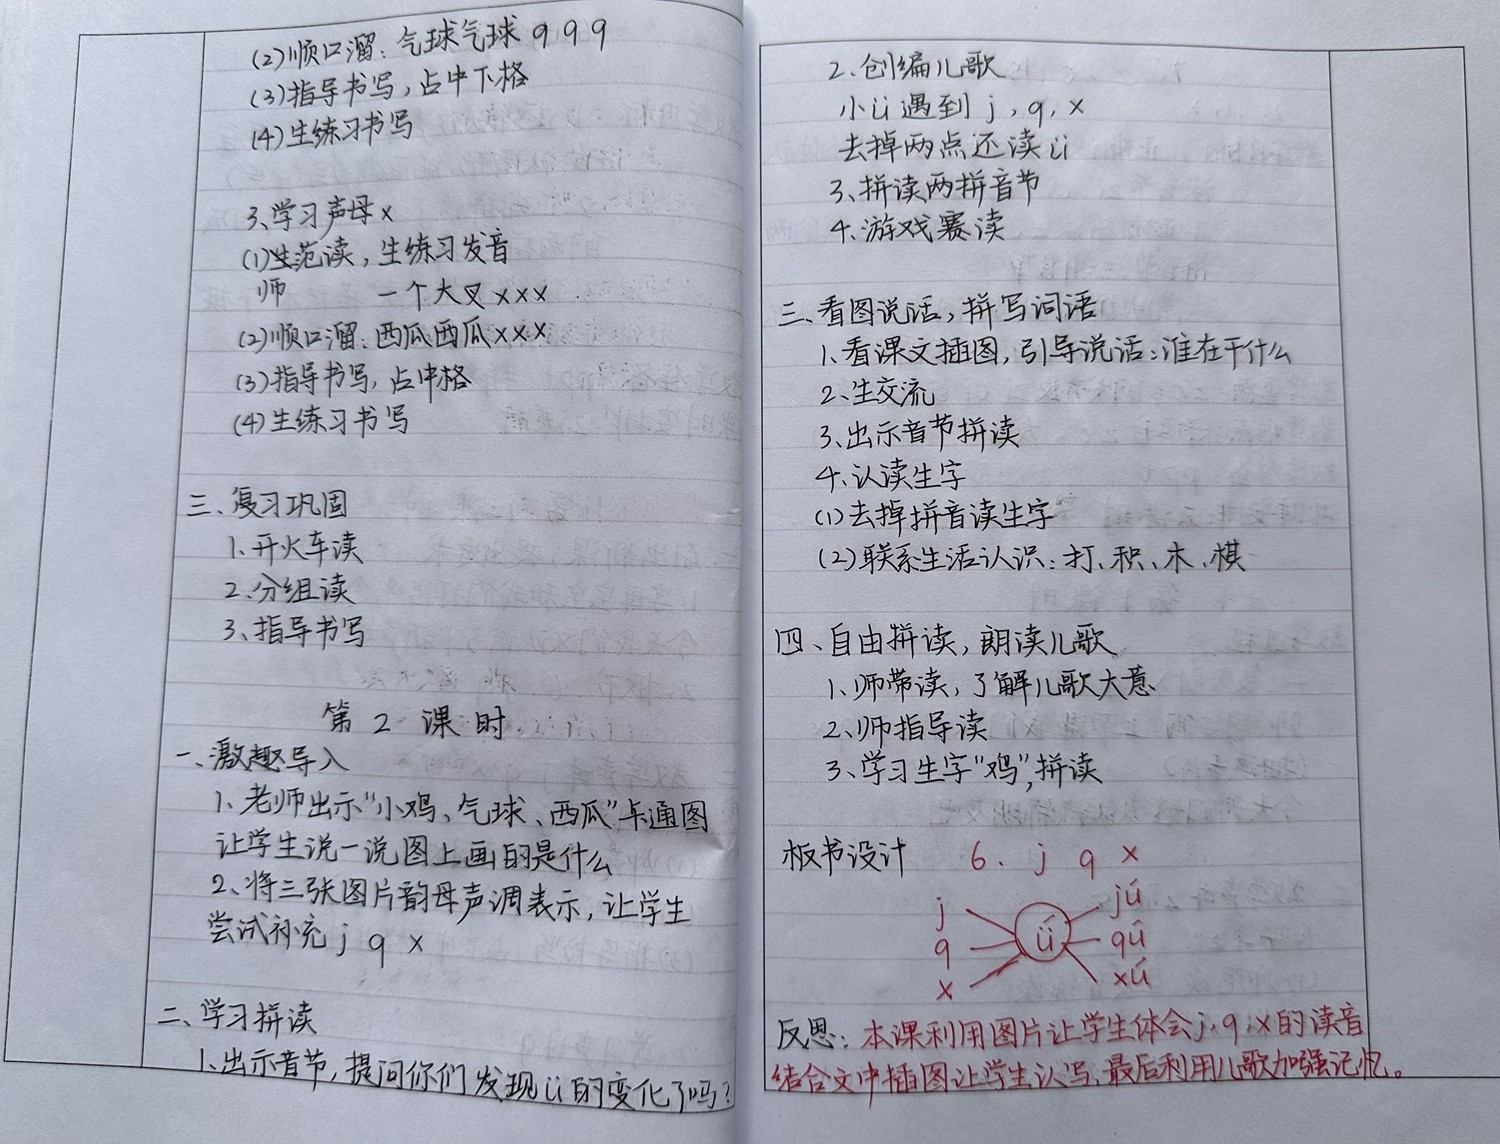 (2)顺口溜：气球气球 q q q
(3)指导书写，占中下格
(4)生练习书写
3、学习声母 x
(1)生范读，生练习发音
师 一个大叉 x x x
(2)顺口溜：西瓜西瓜 x x x
(3)指导书写，占中格
(4)生练习书写
三、复习巩固
1、开火车读
2、分组读
3、指导书写
第 2 课时
一、激趣导入
1、老师出示“小鸡、气球、西瓜”卡通图
让学生说一说图上画的是什么
2、将三张图片韵母声调表示，让学生
尝试补充 j q x
二、学习拼读
1、出示音节，提问你们发现ü的变化了吗？
2、创编儿歌
小ü遇到 j，q，x
去掉两点还读ü
3、拼读两拼音节
4、游戏赛读
三、看图说话，拼写词语
1、看课文插图，引导说话：谁在干什么
2、生交流
3、出示音节拼读
4、认读生字
(1)去掉拼音读生字
(2)联系生活认识：打、积、木、棋
四、自由拼读，朗读儿歌
1、师带读，了解儿歌大意
2、师指导读
3、学习生字“鸡”，拼读
板书设计 6. j q x
j jú
q ǘ qú
x xú
反思：本课利用图片让学生体会 j、q、x 的读音
结合文中插图让学生认写，最后利用儿歌加强记忆。